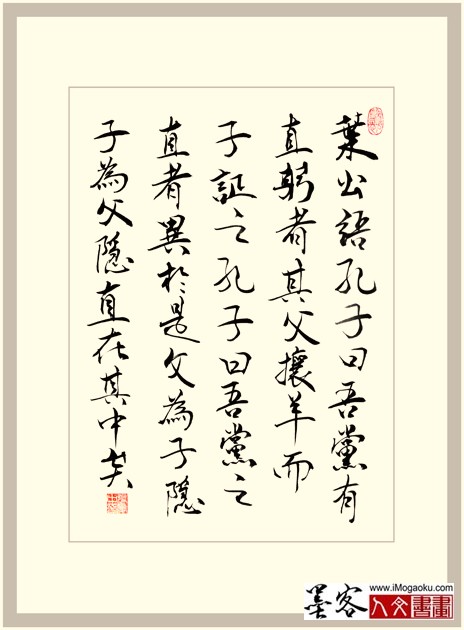 葉公語孔子曰吾黨有
直躬者其父攘羊而
子証之孔子曰吾黨之
直者異於是父為子隱
子為父隱直在其中矣
墨客
www.iMogaoku.com
人文書畫